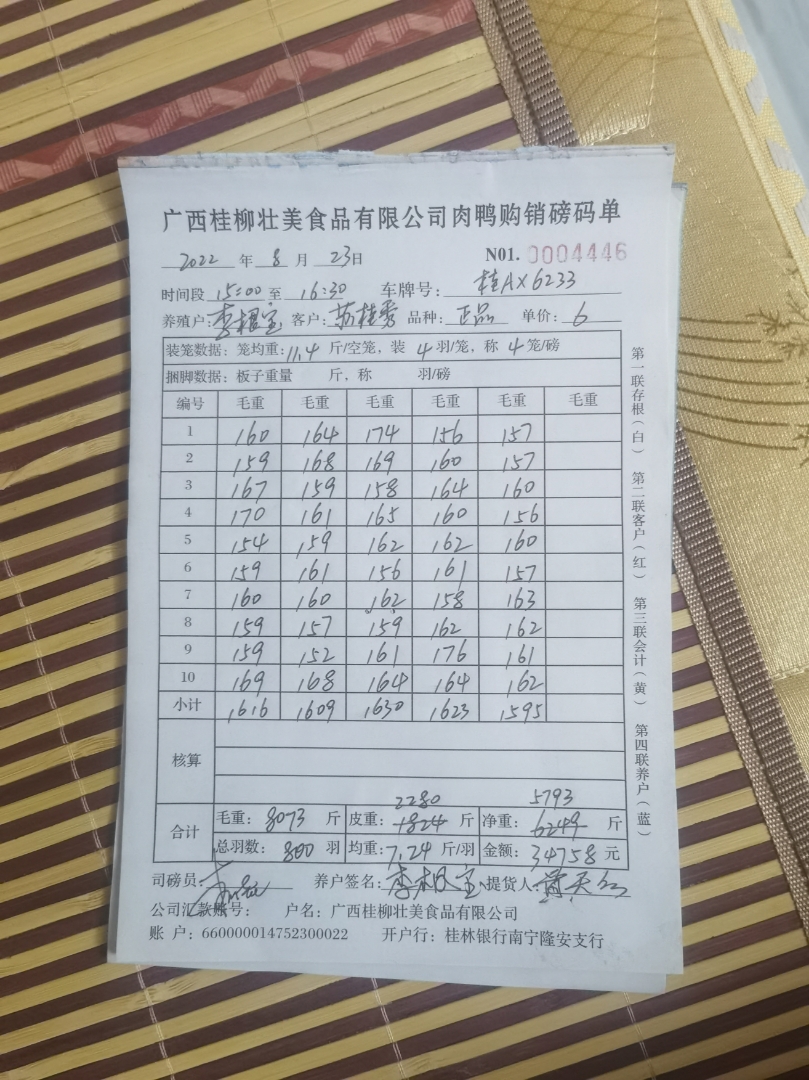 广西桂柳壮美食品有限公司肉鸭购销磅码单
2022 年 8 月 23日 N01. 0004446
时间段 15:00 至 16:30 车牌号: 桂AX6233
养殖户: 李根宝 客户: 苏桂秀 品种: 正品 单价: 6
装笼数据: 笼均重: 11.4 斤/空笼, 装 4 羽/笼, 称 4 笼/磅
捆脚数据: 板子重量 斤, 称 羽/磅
编号 毛重 毛重 毛重 毛重 毛重 毛重
1 160 164 174 156 157
2 159 168 169 160 157
3 167 159 158 164 160
4 170 161 165 160 156
5 154 159 162 162 160
6 159 161 156 161 157
7 160 160 162 158 163
8 159 157 159 162 162
9 159 152 161 176 161
10 169 168 164 164 162
小计 1616 1609 1630 1623 1595
核算
2280 5793
合计 毛重: 8073 斤 皮重: 1824 斤 净重: 6249 斤
总羽数: 800 羽 均重: 7.24 斤/羽 金额: 34758 元
司磅员: 养户签名: 李根宝 提货人:
公司汇款账号: 户名: 广西桂柳壮美食品有限公司
账 户: 660000014752300022 开户行: 桂林银行南宁隆安支行
第一联存根(白) 第二联客户(红) 第三联会计(黄) 第四联养户(蓝)